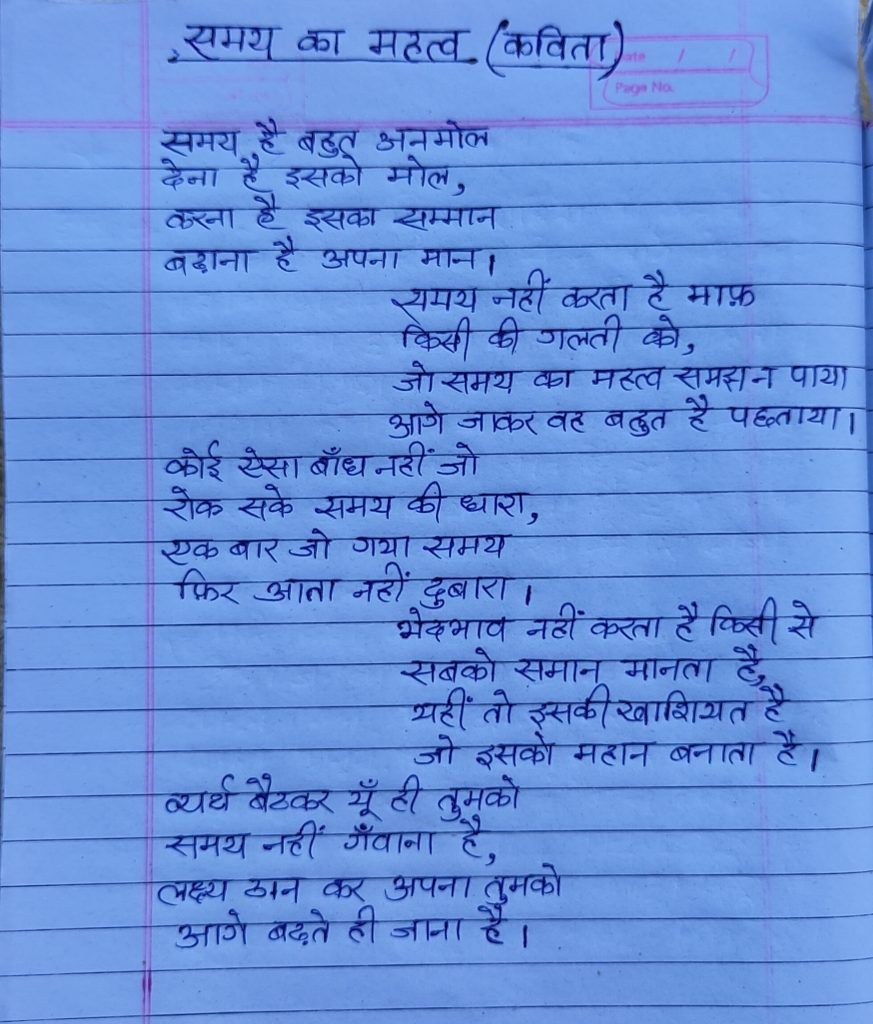 समय का महत्व (कविता)
Date / /
Page No.
समय है बहुत अनमोल
देना है इसको मोल,
करना है इसका सम्मान
बढ़ाना है अपना मान।
समय नहीं करता है माफ़
किसी की गलती को,
जो समय का महत्व समझ न पाया
आगे जाकर वह बहुत है पछताया।
कोई ऐसा बाँध नहीं जो
रोक सके समय की धारा,
एक बार जो गया समय
फ़िर आता नहीं दुबारा।
भेदभाव नहीं करता है किसी से
सबको समान मानता है,
यहीं तो इसकी खाशियत है
जो इसको महान बनाता है।
व्यर्थ बैठकर यूँ ही तुमको
समय नहीं गँवाना है,
लक्ष्य ठान कर अपना तुमको
आगे बढ़ते ही जाना है।